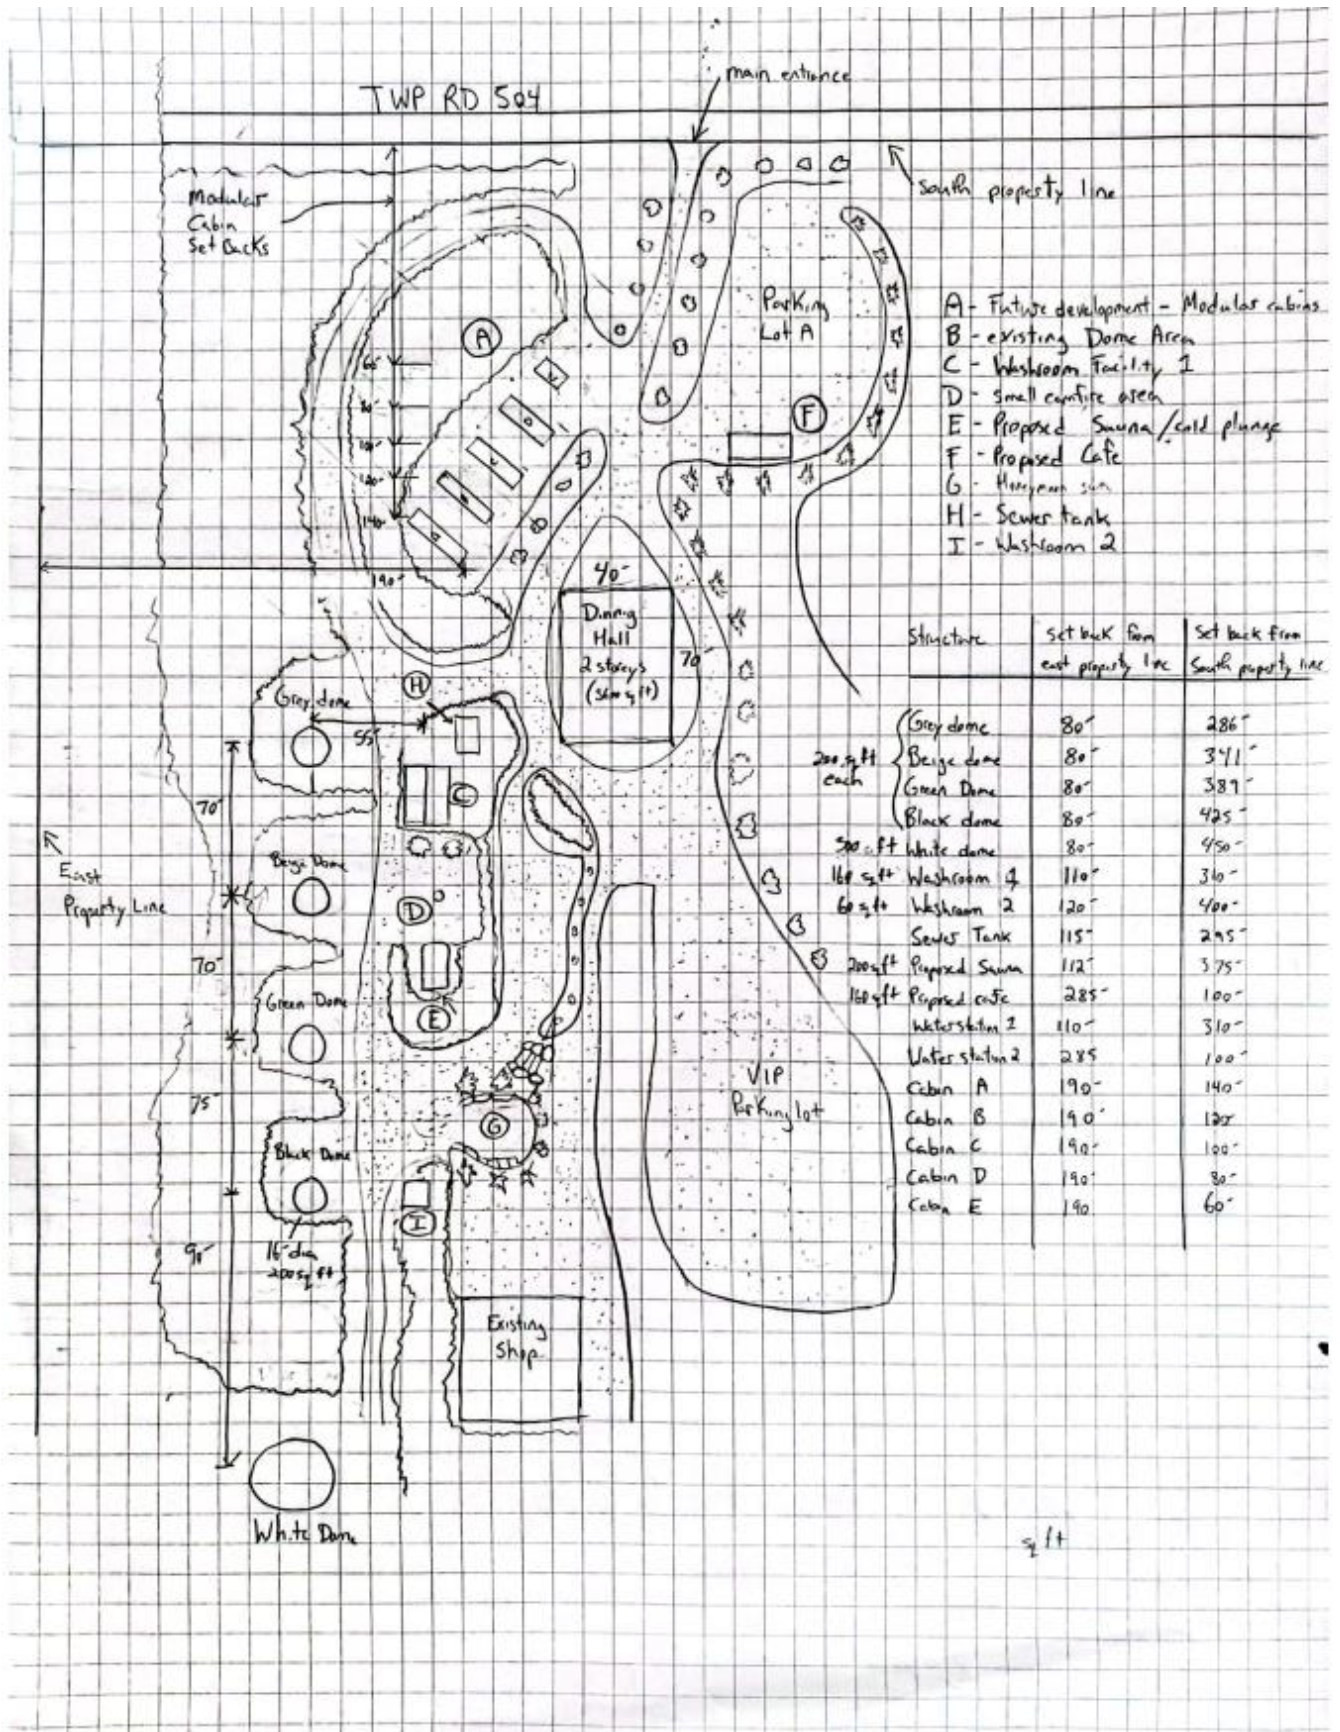 main entrance
TWP RD 504
South property line
Modular
Cabin
Set Backs
A
Parking
Lot A
F
60'
80'
100'
120'
140'
190'
A - Future development - Modular cabins
B - existing Dome Area
C - Washroom Facility 1
D - small campfire area
E - Proposed Sauna/cold plunge
F - Proposed Cafe
G - Honeymoon
H - Sewer tank
I - Washroom 2
40'
Dinning
Hall
2 storeys
70'
H
Grey dome
55'
C
70'
Beige Dome
East
Property Line
D
70'
Green Dome
E
75'
G
Black Dome
I
90'
16' dia
200 sq ft
VIP
Parking lot
Existing
Shop
White Dome
Structure
Set back from
east property line
Set back from
South property line
200 sq ft
each
Grey dome 80' 286'
Beige dome 80' 341'
Green Dome 80' 389'
Black dome 80' 425'
white dome 80' 450'
160 sq ft Washroom 1 110' 310'
60 sq ft Washroom 2 120' 400'
Sewer Tank 115' 295'
200 sq ft Proposed Sauna 112' 375'
160 sq ft Proposed cafe 285' 100'
Water station 1 110' 310'
Water station 2 285 100'
Cabin A 190' 140'
Cabin B 190' 120'
Cabin C 190' 100'
Cabin D 190' 80'
Cabin E 190 60'
sq ft